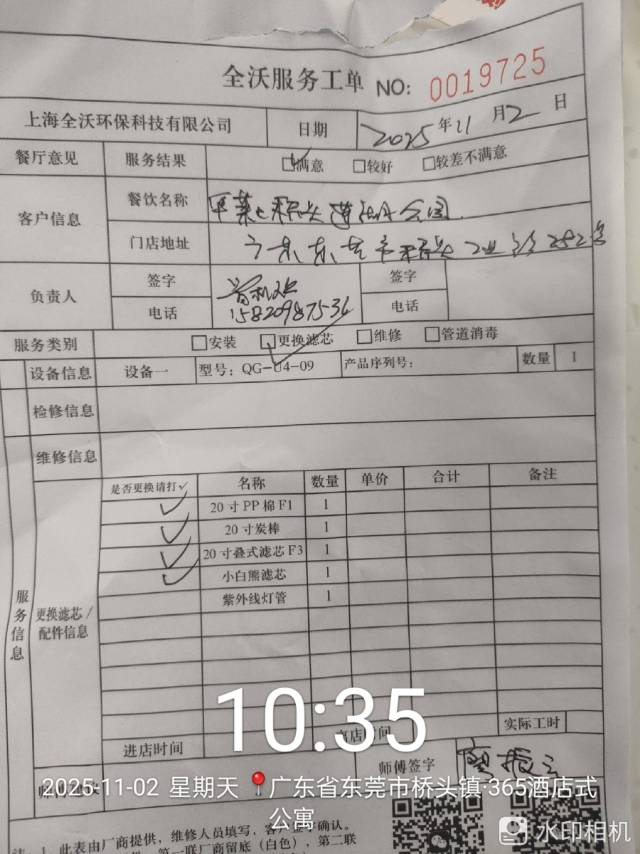 全沃服务工单 NO: 0019725
上海全沃环保科技有限公司 日期 2025年11月2日
餐厅意见 服务结果 ☑满意 □较好 □较差不满意
客户信息 餐饮名称
门店地址 广东东莞市桥头
负责人 签字 签字
电话 15820987536 电话
服务类别 □安装 ☑更换滤芯 □维修 □管道消毒
设备信息 设备一 型号: QG-U4-09 产品序列号: 数量 1
检修信息
维修信息
服务信息
更换滤芯/配件信息
是否更换请打✓ 名称 数量 单价 合计 备注
✓ 20寸PP棉F1 1
✓ 20寸炭棒 1
✓ 20寸叠式滤芯F3 1
✓ 小白熊滤芯 1
紫外线灯管 1
10:35
实际工时
进店时间
师傅签字
2025-11-02 星期天 广东省东莞市桥头镇·365酒店式公寓
注:1.此表由厂商提供,维修人员填写,客户确认。
第一联厂商留底(白色)、第二联
水印相机